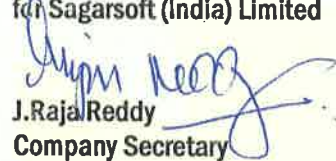 for Sagarsoft (India) Limited
J.Raja Reddy
Company Secretary